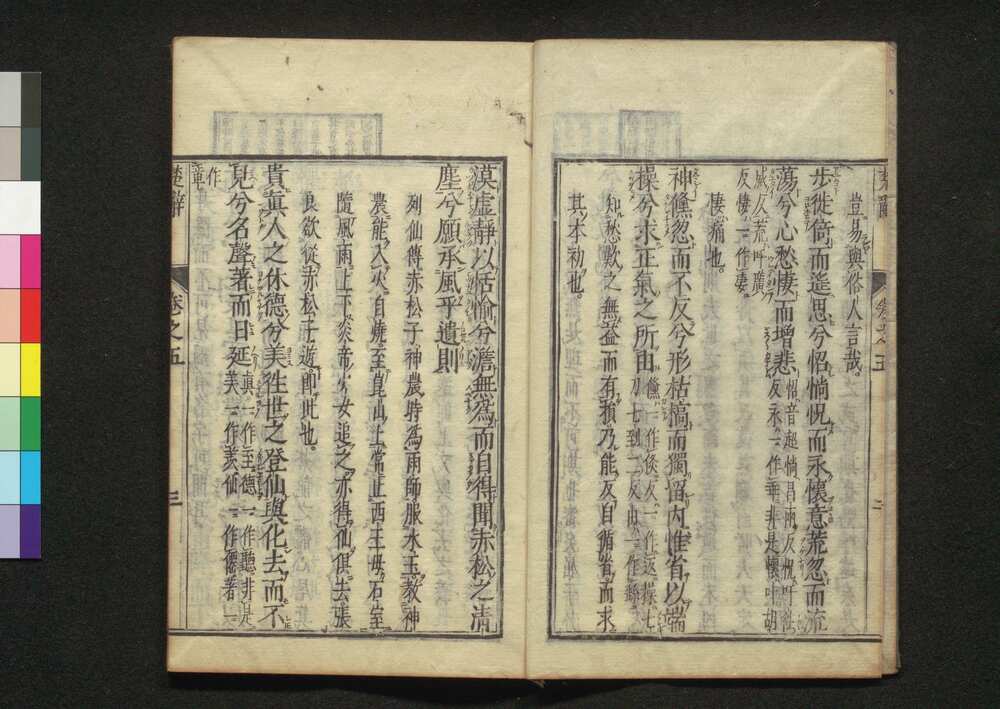 豈易與俗人言哉
步徙倚而遙思兮怊惝怳而永懷意荒忽而流
蕩兮心愁悽而增悲怊音超惝昌兩反怳吁往
反永一作乖非是懷叶胡
威反荒呼廣
反悽一作凄
悽痛也
神儵忽而不反兮形枯槁而獨留内惟省以端
操兮求正氣之所由儵一作倐反一作返操七
刀七到二反由一作繇
知愁歎之無益而有損乃能反自循省而求
其本初也
漠虛靜以恬愉兮澹無爲而自得聞赤松之清
塵兮願承風乎遺則
列仙傳赤松子神農時爲雨師服水玉教神
農能入火自燒至崑山上常止西王母石室
隨風雨上下炎帝少女追之亦得仙俱去張
良欲從赤松子遊即此也
貴眞人之休德兮美徃世之登仙與化去而不
見兮名聲著而日延眞一作至德一作聽非是
美一作羨仙一作僊著一
作章
楚辭 卷之五 三